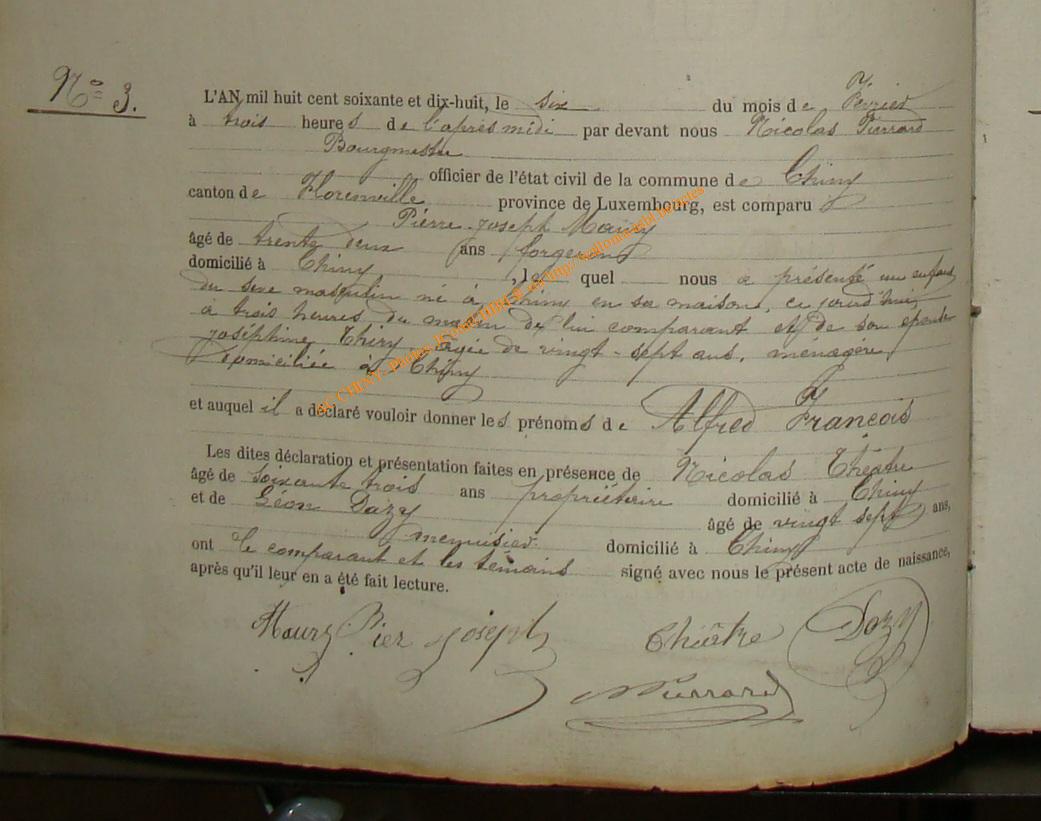 N° 3.
L'AN mil huit cent soixante et dix-huit, le six du mois de Février
à trois heures de l'après midi par devant nous Nicolas Pierrard
Bourgmestre
officier de l'état civil de la commune de Chiny
canton de Florenville province de Luxembourg, est comparu
Pierre Joseph Maury
âgé de trente deux ans forgeron
domicilié à Chiny, le quel nous a présenté un enfant
du sexe masculin né à Chiny en sa maison, ce jourd'hui
à trois heures du matin de lui comparant et de son épouse
Joséphine Thiry âgée de vingt-sept ans, ménagère,
domiciliée à Chiny
et auquel il a déclaré vouloir donner les prénoms de Alfred François
Les dites déclaration et présentation faites en présence de Nicolas Théatre
âgé de soixante trois ans propriétaire domicilié à Chiny
et de Léon Dazy âgé de vingt sept ans,
menuisier domicilié à Chiny
ont le comparant et les témoins signé avec nous le présent acte de naissance,
après qu'il leur en a été fait lecture.
Maury Pier Joseph Théâtre Dazy
NPierrard